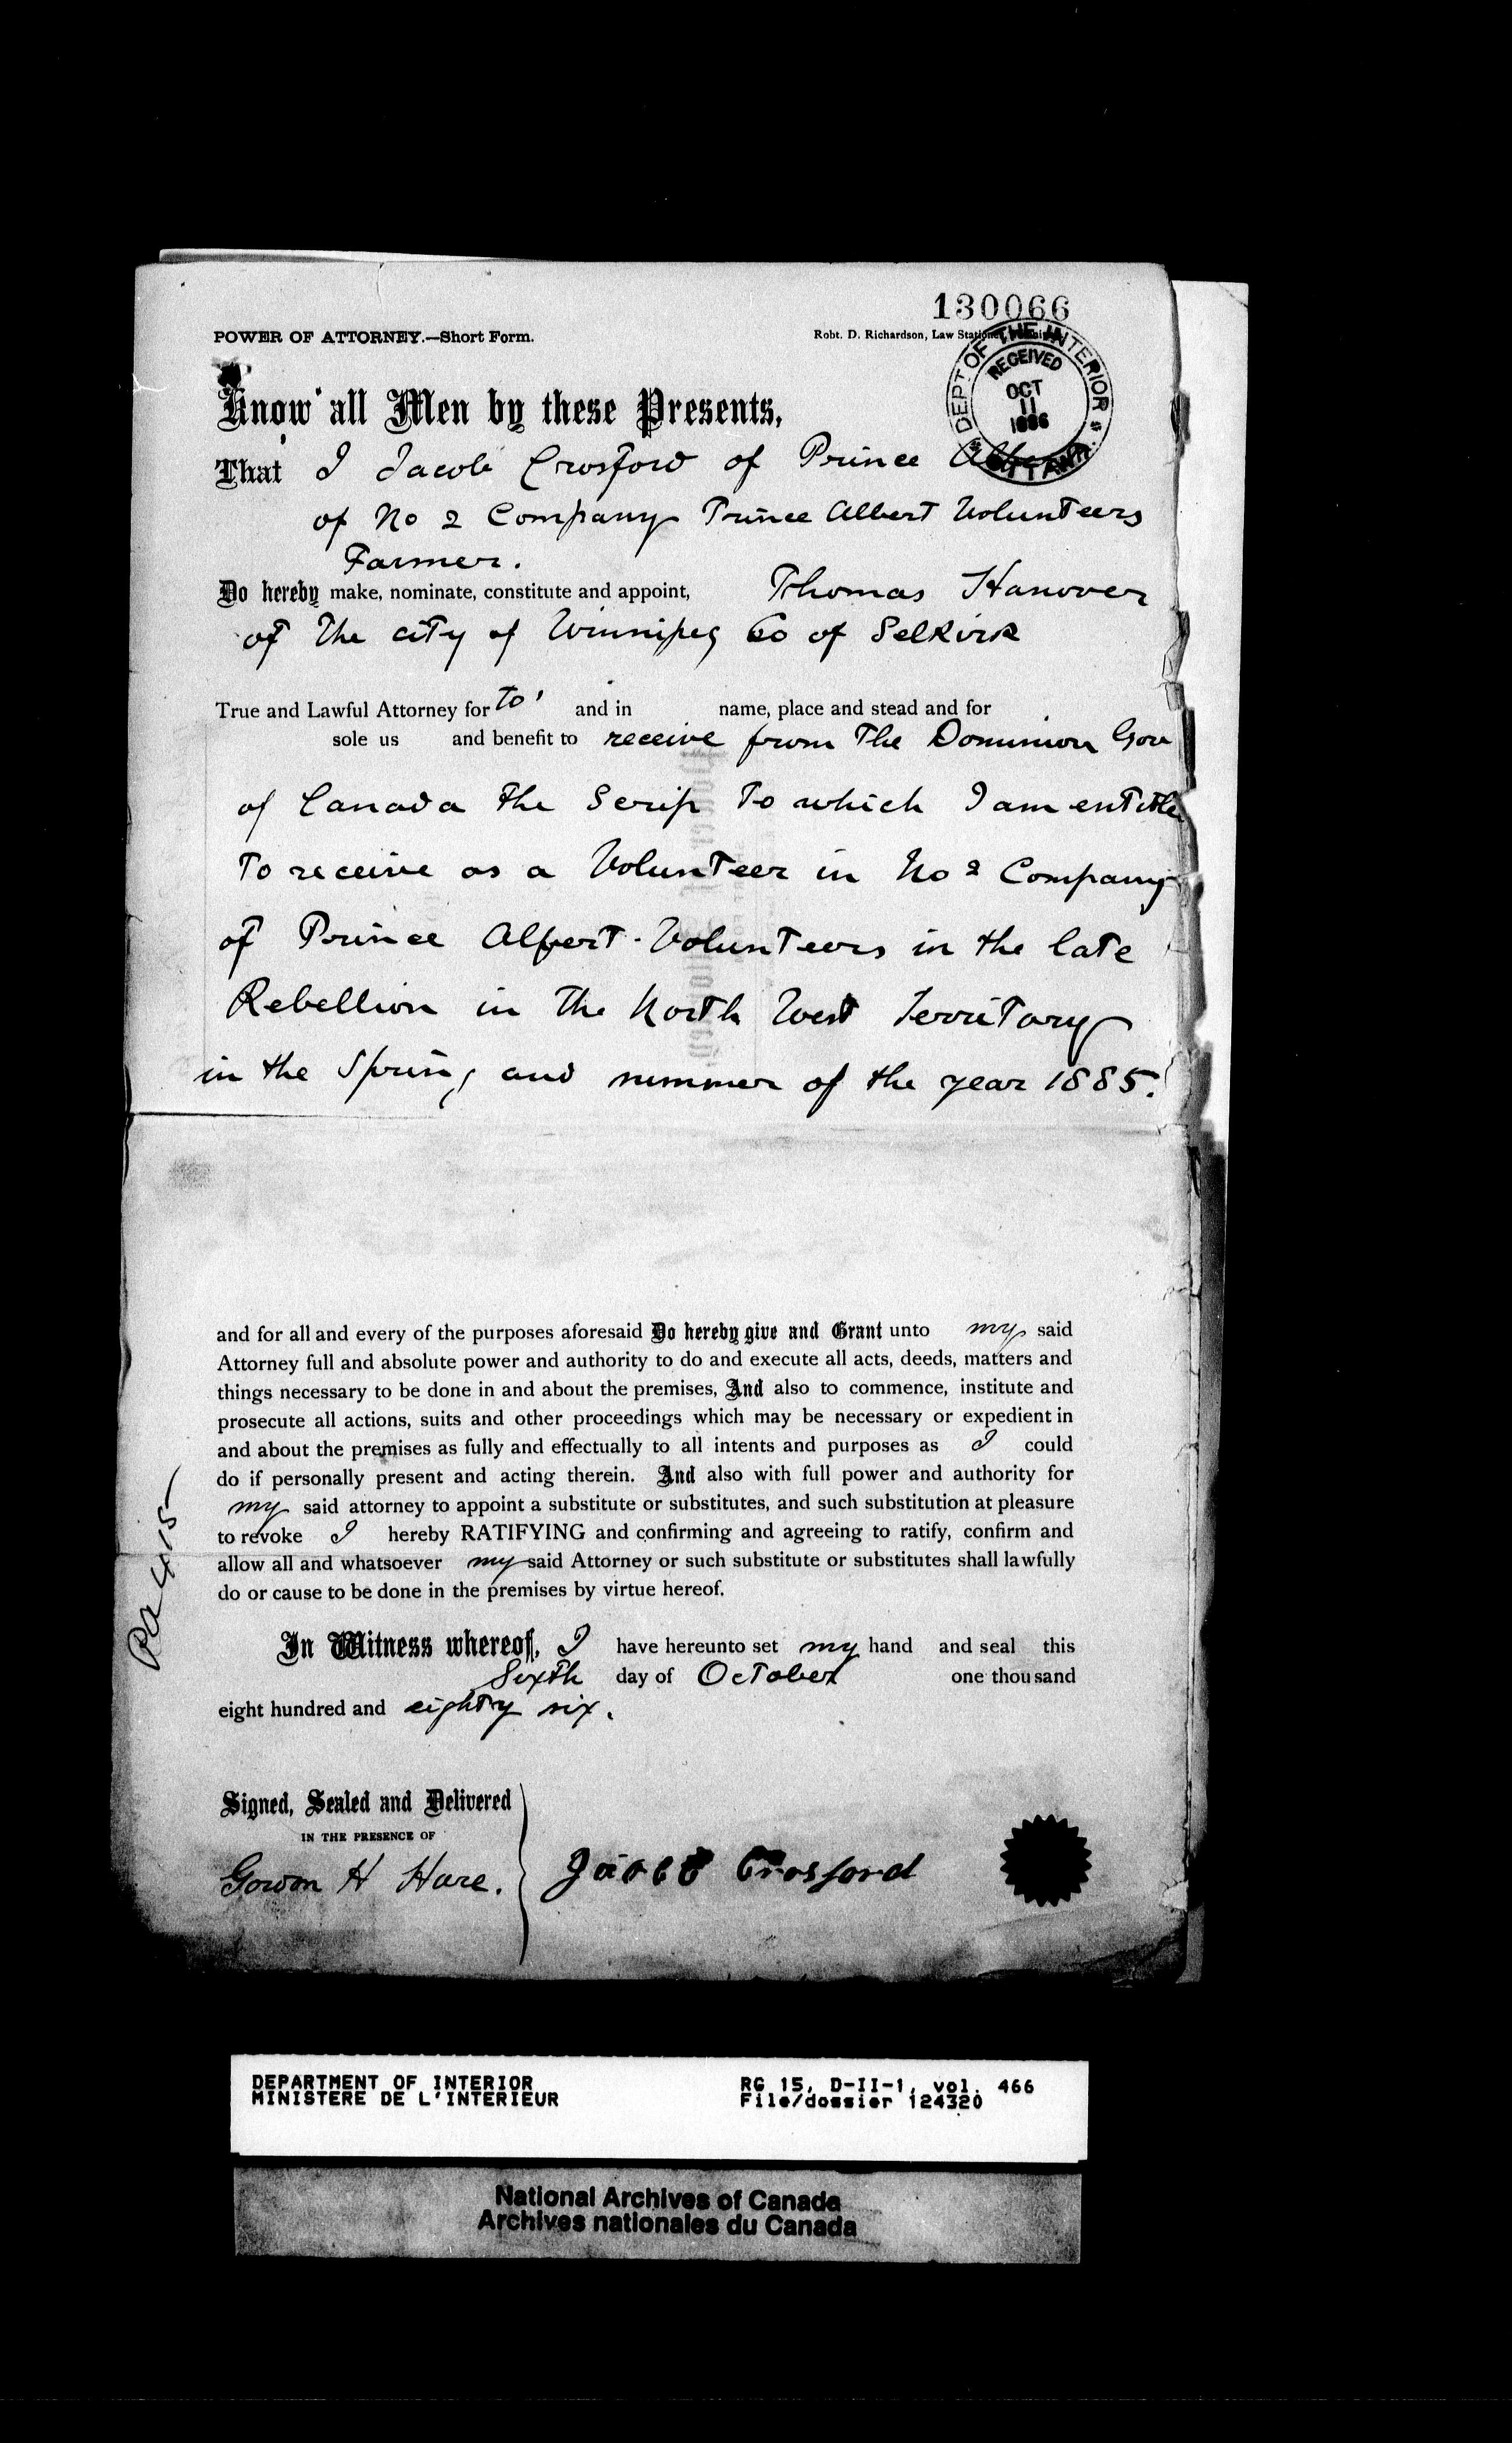 130066
POWER OF ATTORNEY.—Short Form.
Robt. D. Richardson, Law
DEPT OF THE INTERIOR
RECEIVED
OCT
11
1886
OTTAWA
Know all Men by these Presents,
That I Jacob Crosford of Prince
of No 2 Company Prince Albert Volunteers
Farmer.
Do hereby make, nominate, constitute and appoint, Thomas Hanover
of the city of Winnipeg Co of Selkirk
True and Lawful Attorney for to and in name, place and stead and for
sole us and benefit to receive from The Dominion Gov
of Canada the Scrip To which I am entitle
To receive as a Volunteer in No 2 Company
of Prince Albert Volunteers in the late
Rebellion in The North West Territory
in the Spring and summer of the year 1885.
and for all and every of the purposes aforesaid Do hereby give and Grant unto my said
Attorney full and absolute power and authority to do and execute all acts, deeds, matters and
things necessary to be done in and about the premises, And also to commence, institute and
prosecute all actions, suits and other proceedings which may be necessary or expedient in
and about the premises as fully and effectually to all intents and purposes as I could
do if personally present and acting therein. And also with full power and authority for
my said attorney to appoint a substitute or substitutes, and such substitution at pleasure
to revoke I hereby RATIFYING and confirming and agreeing to ratify, confirm and
allow all and whatsoever my said Attorney or such substitute or substitutes shall lawfully
do or cause to be done in the premises by virtue hereof.
In Witness whereof, I have hereunto set my hand and seal this
Sixth day of October one thousand
eight hundred and eighty six.
Signed, Sealed and Delivered
IN THE PRESENCE OF
Gowan H Hare.
Jacob Crosford
DEPARTMENT OF INTERIOR
MINISTERE DE L'INTERIEUR
RG 15, D-II-1, vol. 466
File/dossier 124320
National Archives of Canada
Archives nationales du Canada